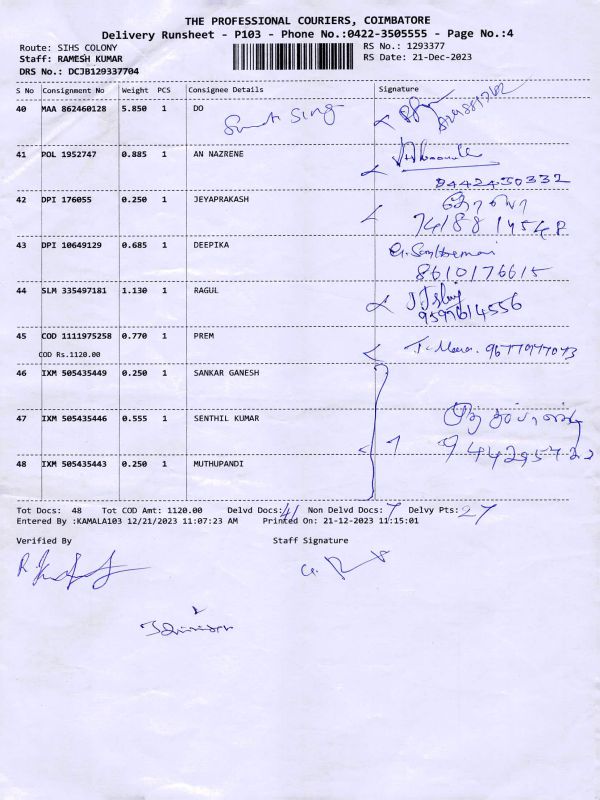 THE PROFESSIONAL COURIERS, COIMBATORE
Delivery Runsheet - P103 - Phone No.:0422-3505555 - Page No.:4
Route: SIHS COLONY RS No.: 1293377
Staff: RAMESH KUMAR RS Date: 21-Dec-2023
DRS No.: DCJB129337704
S No Consignment No Weight PCS Consignee Details Signature
40 MAA 862460128 5.850 1 DO
41 POL 1952747 0.885 1 AN NAZRENE
9442450332
42 DPI 176055 0.250 1 JEYAPRAKASH
43 DPI 10649129 0.685 1 DEEPIKA
8610176615
44 SLM 335497181 1.130 1 RAGUL
9597614556
45 COD 1111975258 0.770 1 PREM
COD Rs.1120.00
46 IXM 505435449 0.250 1 SANKAR GANESH
47 IXM 505435446 0.555 1 SENTHIL KUMAR
48 IXM 505435443 0.250 1 MUTHUPANDI
Tot Docs: 48 Tot COD Amt: 1120.00 Delvd Docs: 41 Non Delvd Docs: 7 Delvy Pts: 27
Entered By :KAMALA103 12/21/2023 11:07:23 AM Printed On: 21-12-2023 11:15:01
Verified By Staff Signature